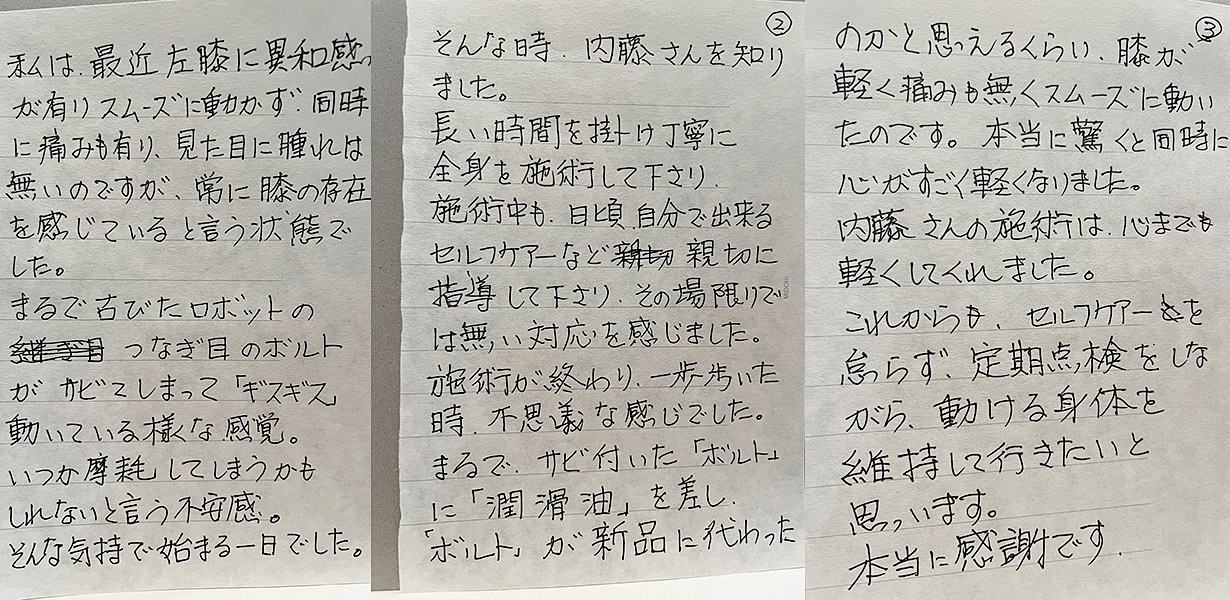 私は、最近左膝に異和感
が有りスムーズに動かず、同時
に痛みも有り、見た目に腫れは
無いのですが、常に膝の存在
を感じていると言う状態で
した。
まるで古びたロボットの
つなぎ目のボルト
がサビてしまって「ギスギス」
動いている様な感覚。
いつか摩耗してしまうかも
しれないと言う不安感。
そんな気持で始まる一日でした。
②
そんな時、内藤さんを知り
ました。
長い時間を掛け丁寧に
全身を施術して下さり、
施術中も、日頃、自分で出来る
セルフケアーなど親切 親切に
指導して下さり、その場限りで
は無い対応を感じました。
施術が終わり、一歩歩いた
時、不思議な感じでした。
まるで、サビ付いた「ボルト」
に「潤滑油」を差し、
「ボルト」が新品に代わった
MIDORI
③
のかと思えるくらい、膝が
軽く痛みも無くスムーズに動い
たのです。本当に驚くと同時に
心がすごく軽くなりました。
内藤さんの施術は、心までも
軽くしてくれました。
これからも、セルフケアーを
怠らず、定期点検をしな
がら、動ける身体を
維持して行きたいと
思います。
本当に感謝です.